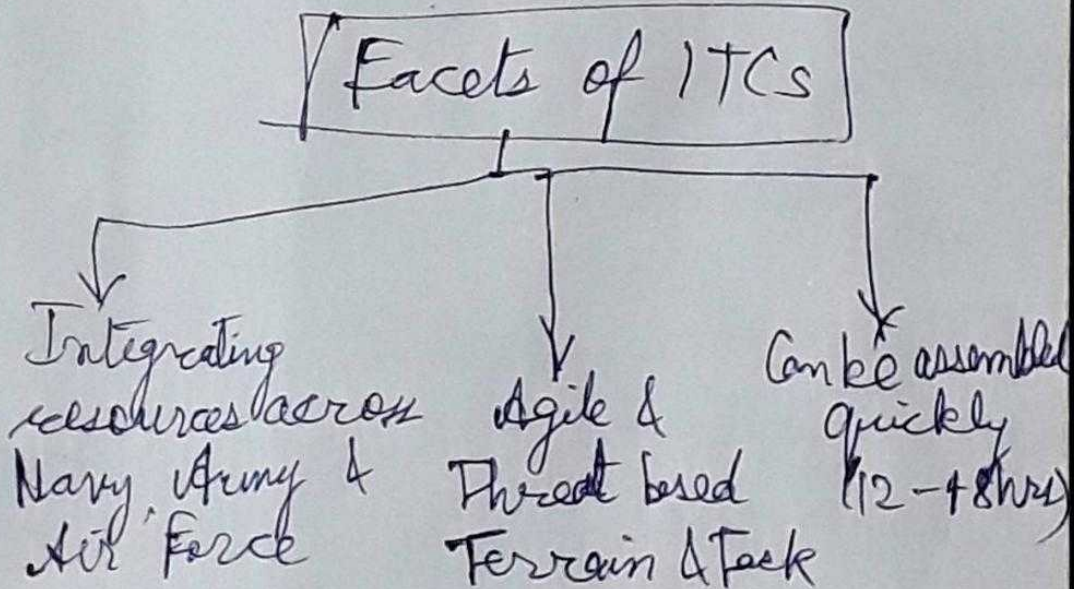 Facets of ITCs
Integrating
resources across
Navy, Army &
Air Force
Agile &
Threat based
Terrain & Task
Can be assembled
quickly
(12-48hrs)